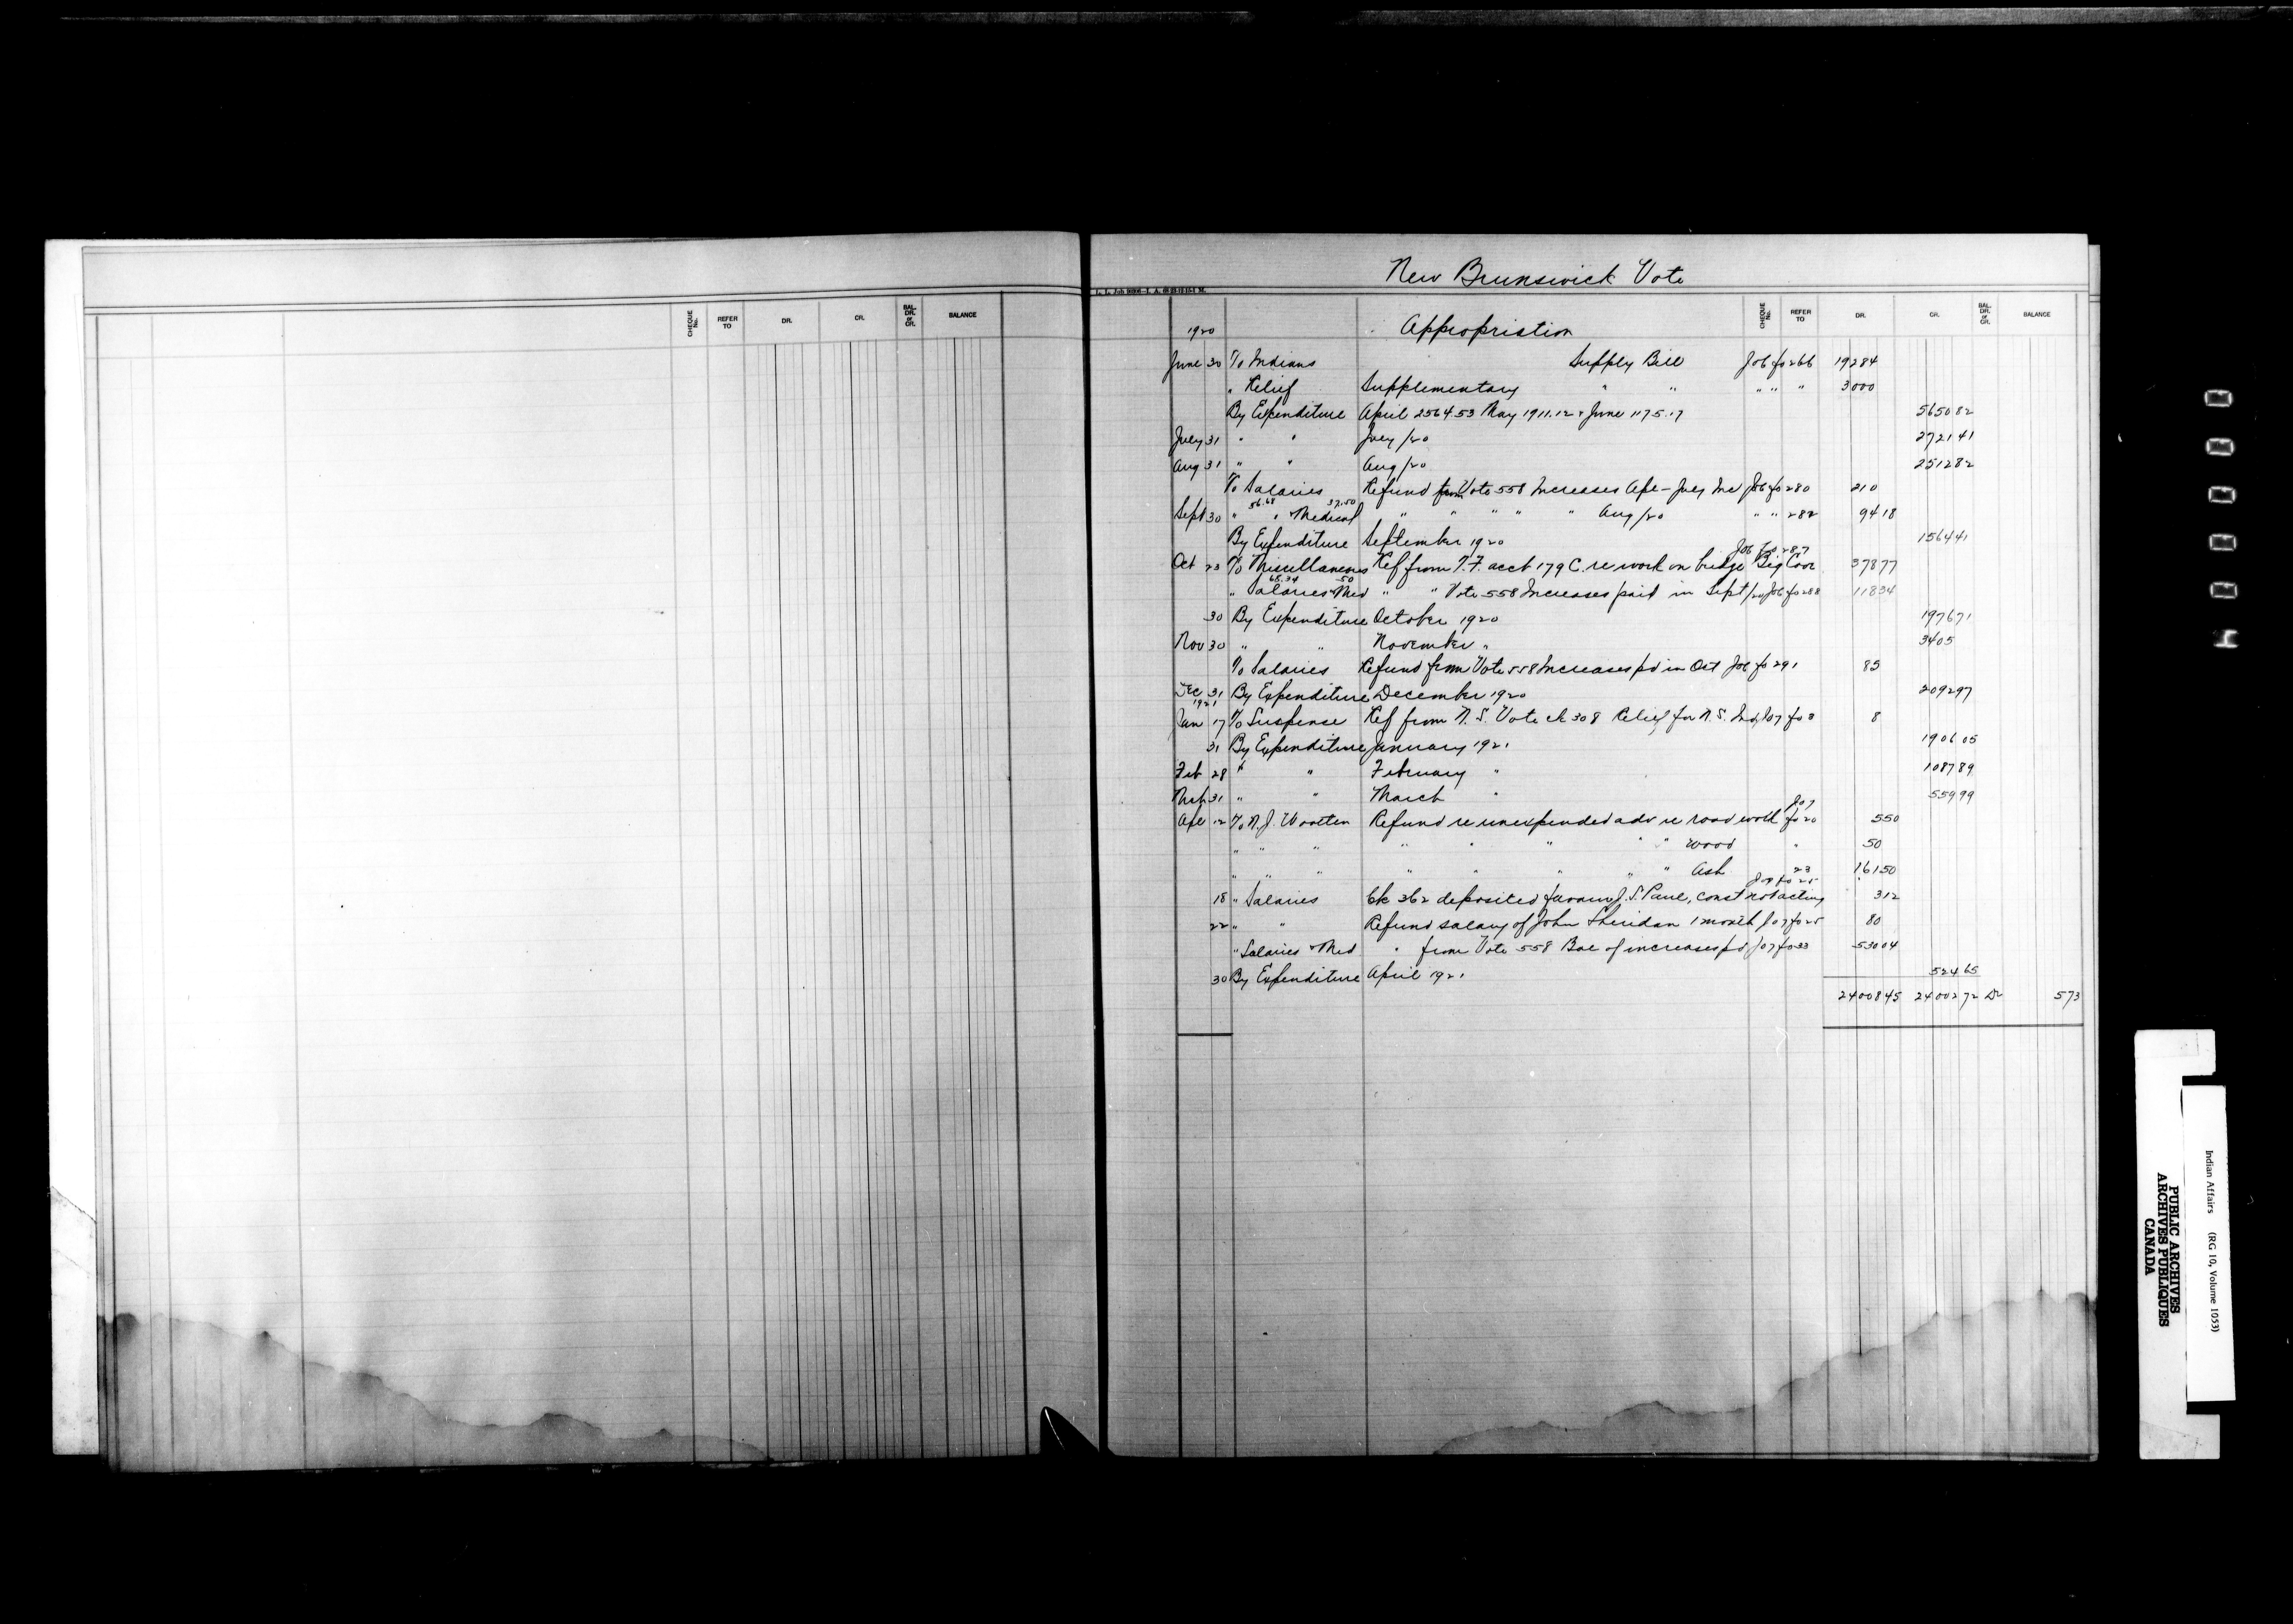 New Brunswick Vote
L. L. Job 90906—I. A. 68 23-12-15-1 M.
CHEQUE No. REFER TO DR. CR. BAL. DR. or CR. BALANCE
1920 Appropriation CHEQUE No. REFER TO DR. CR. BAL. DR. or CR. BALANCE
June 30 To Indians Supply Bill Jo6 fo 266 19284
" Relief Supplementary " " " " " 3000
By Expenditure April 2564.53 May 1911.12 & June 1175.17 565082
July 31 " " July /20 272141
Aug 31 " " Aug /20 251282
To Salaries Refund from Vote 558 Increases Apl - July Inc Jo6 fo 280 210
56.68 37.50
Sept 30 " " & Medical " " " " " Aug /20 " " 282 9418
By Expenditure September 1920 156441
Jo6 fo 287
Oct 23 To Miscellaneous Ref from T.F. acct 179 C. re work on bridge Big Cove 37877
68.34 50
" Salaries & Med " " Vote 558 Increases paid in Sept /20 Jo6 fo 288 11834
30 By Expenditure October 1920 197671
Nov 30 " " November " 3405
To Salaries Refund from Vote 558 Increases pd in Oct Jo6 fo 291 85
Dec 31 By Expenditure December 1920 209297
1921
Jan 17 To Suspense Ref from N.S. Vote ck 308 Relief for N.S. Ind Jo7 fo 3 8
31 By Expenditure January 1921 190605
Feb 28 " " February " 108789
Mch 31 " " March " 55999
Jo7
Apl 12 To N.J. Wootten Refund re unexpended adv re road work fo 20 550
" " " " " " " " wood " 50
" " " " " " " " Ash 23 16150
Jo7 fo 25
18 " Salaries Ck 362 deposited favour J.S. Paul, const not acting 312
22 " " Refund salary of John Sheridan 1 month Jo7 fo 25 80
" Salaries & Med " from Vote 558 Bal of increases pd Jo7 fo 33 53004
30 By Expenditure April 1921 52465
2400845 2400272 Dr 573
000004
Indian Affairs (RG 10, Volume 1053)
PUBLIC ARCHIVES
ARCHIVES PUBLIQUES
CANADA